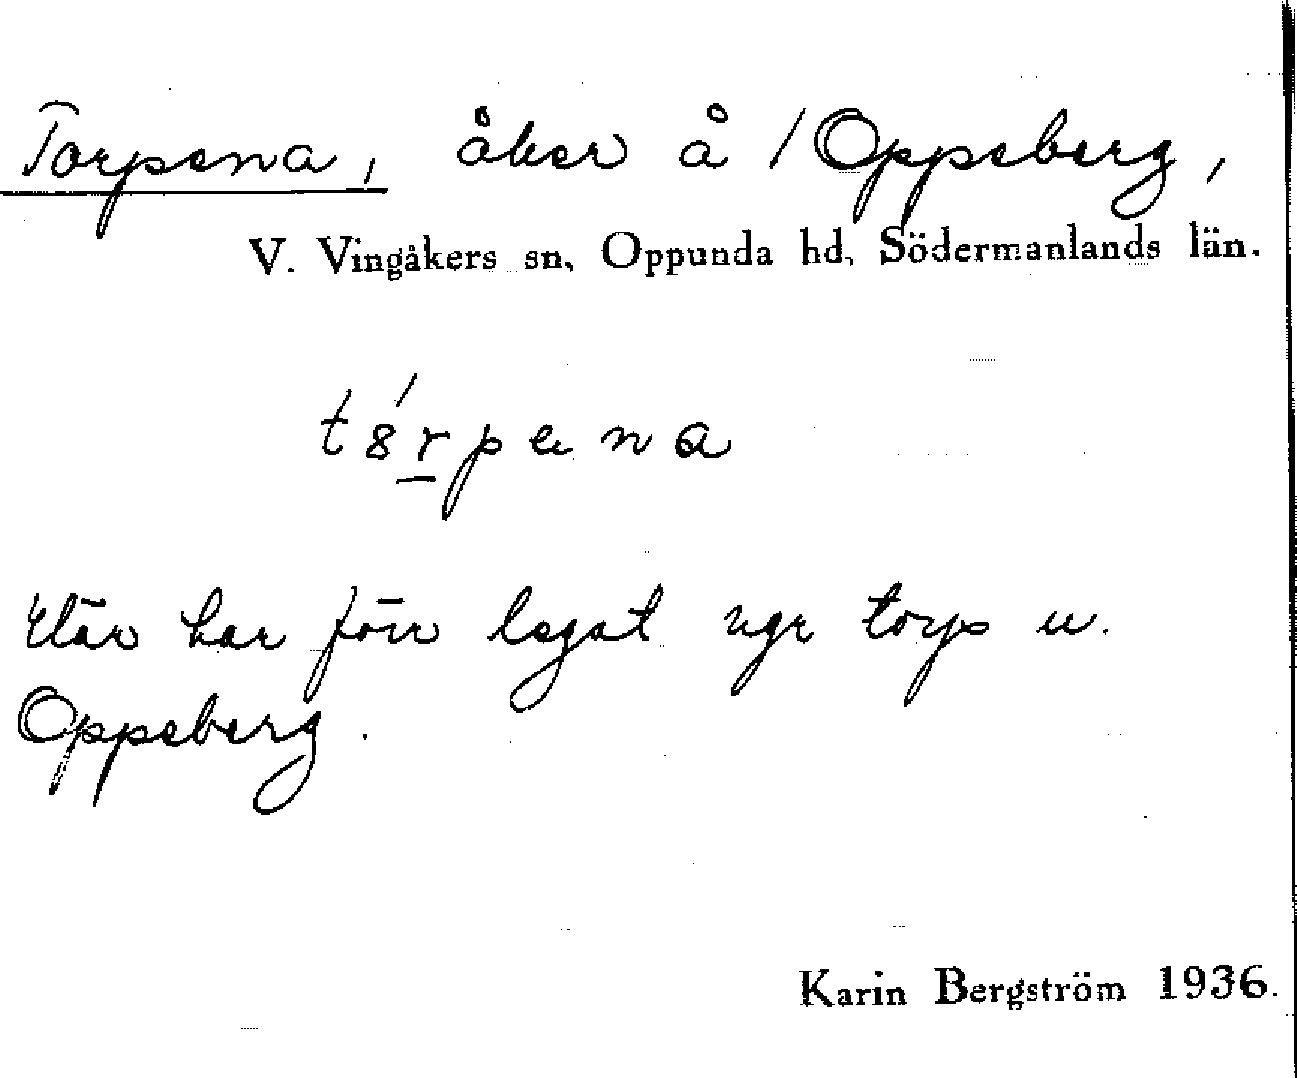 Torpena, åker å /Oppeberg,
V. Vingåkers sn, Oppunda hd, Södermanlands län.
Här har förr legat ngr torp u.
Oppeberg.
Karin Bergström 1936.